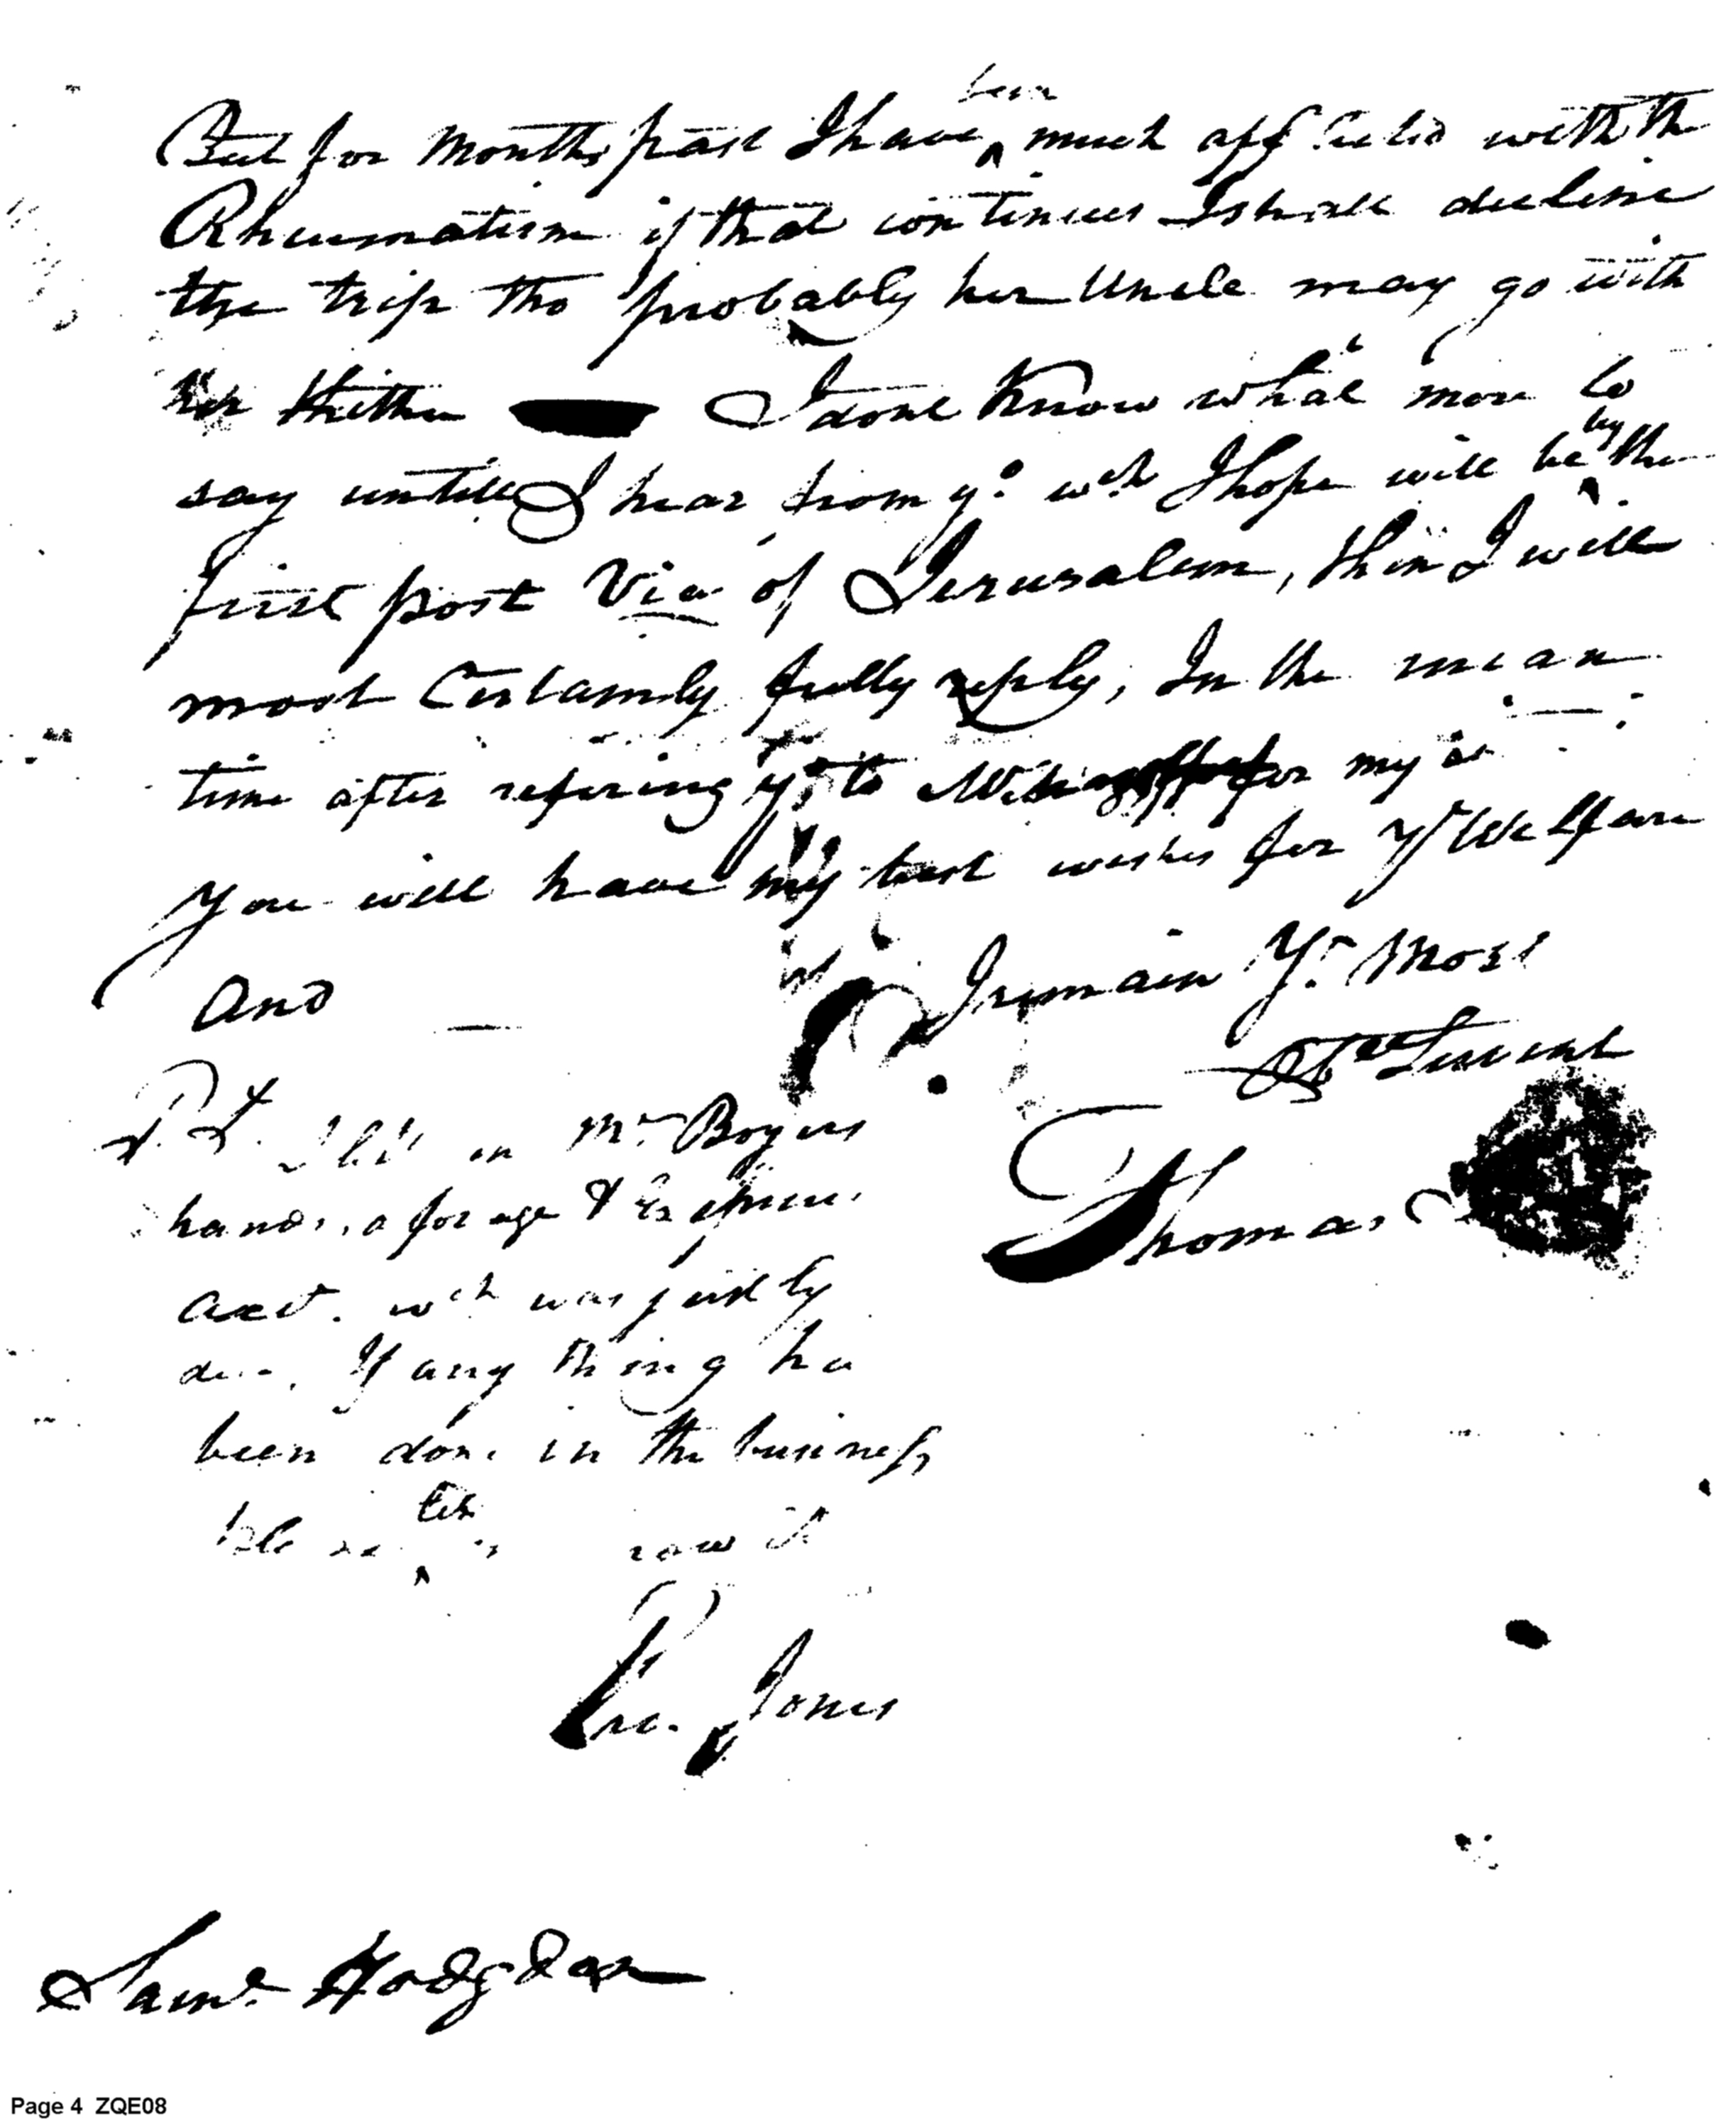 been
But for Months past I have ^ much afflicted with th
Rheumatism if that continues I shall decline
the trip tho probably her Uncle may go with
her thither I dont Know what more to
by
say untill I hear from yo. wch I hope will be ^ the
first post Via of Jerusalem, then I will
most Certainly fully reply, In the mean
time after refering yo. to for my
You will have my best wishes for Yr Welfare
and — I remain Yr. Most
Obt Servant
Thomas
P.S. I left in Mr Bogers
hands, a forage & Expence
acct. wch was justly
due. If any thing ha
been done in the business
let
it
Tho. Jones
Saml Hodgdon
Page 4 ZQE08